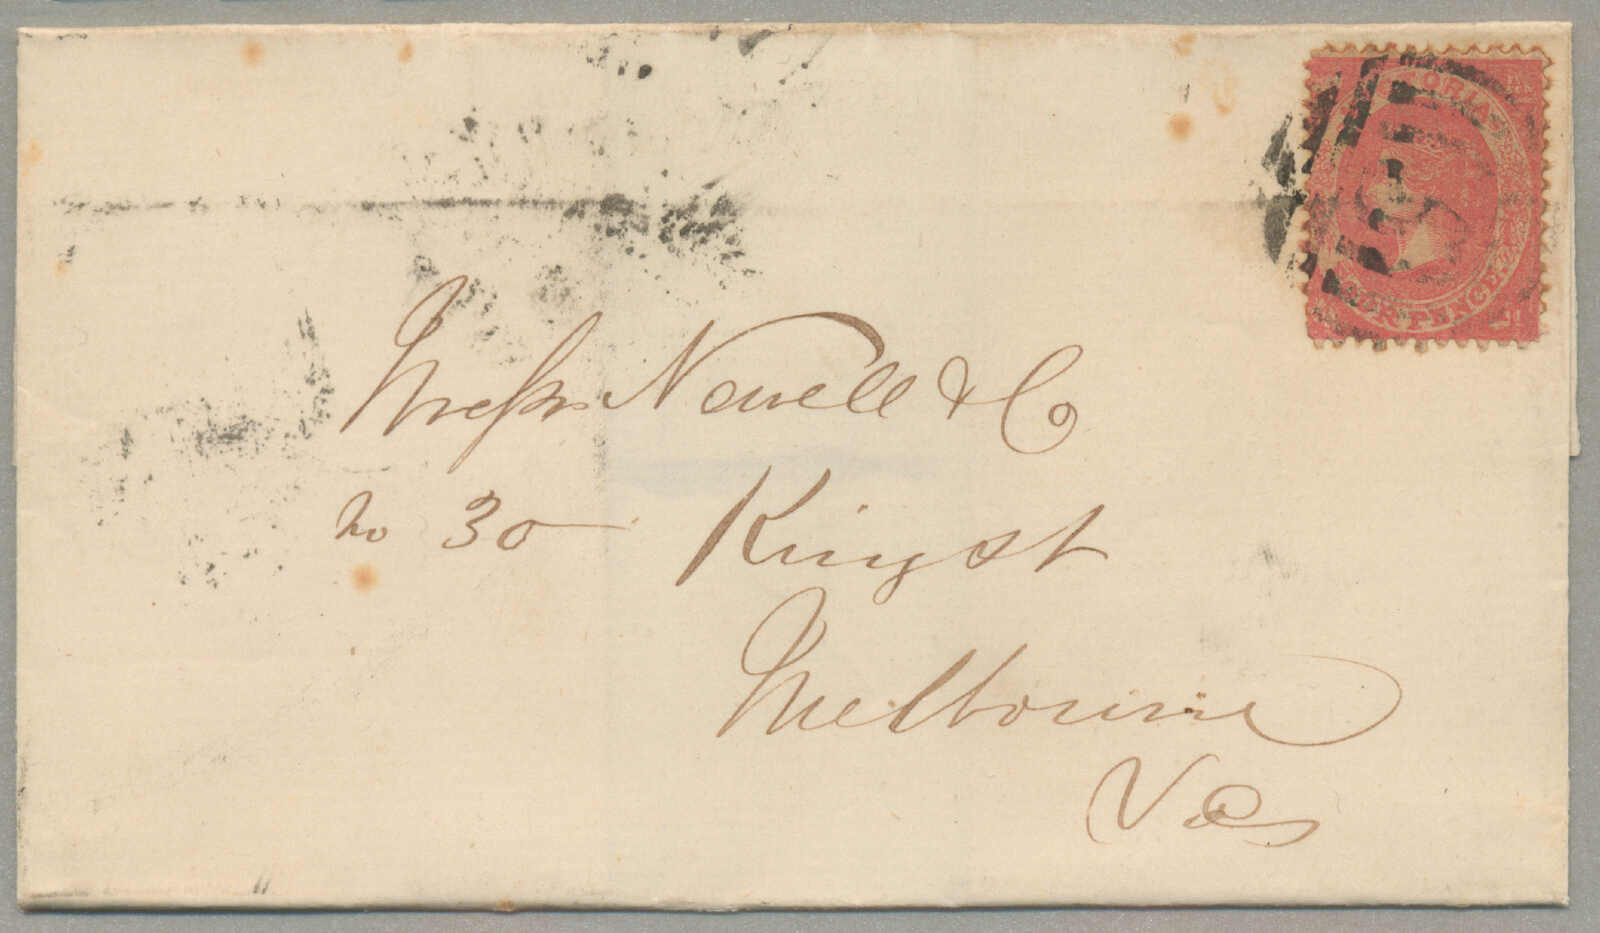 VICTORIA
FOUR PENCE
Messrs Newell & Co
No 30 King st
Melbourne